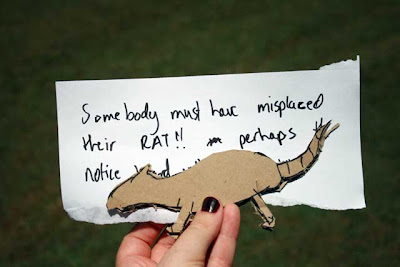 Somebody must have misplaced
their RAT!! perhaps
notice